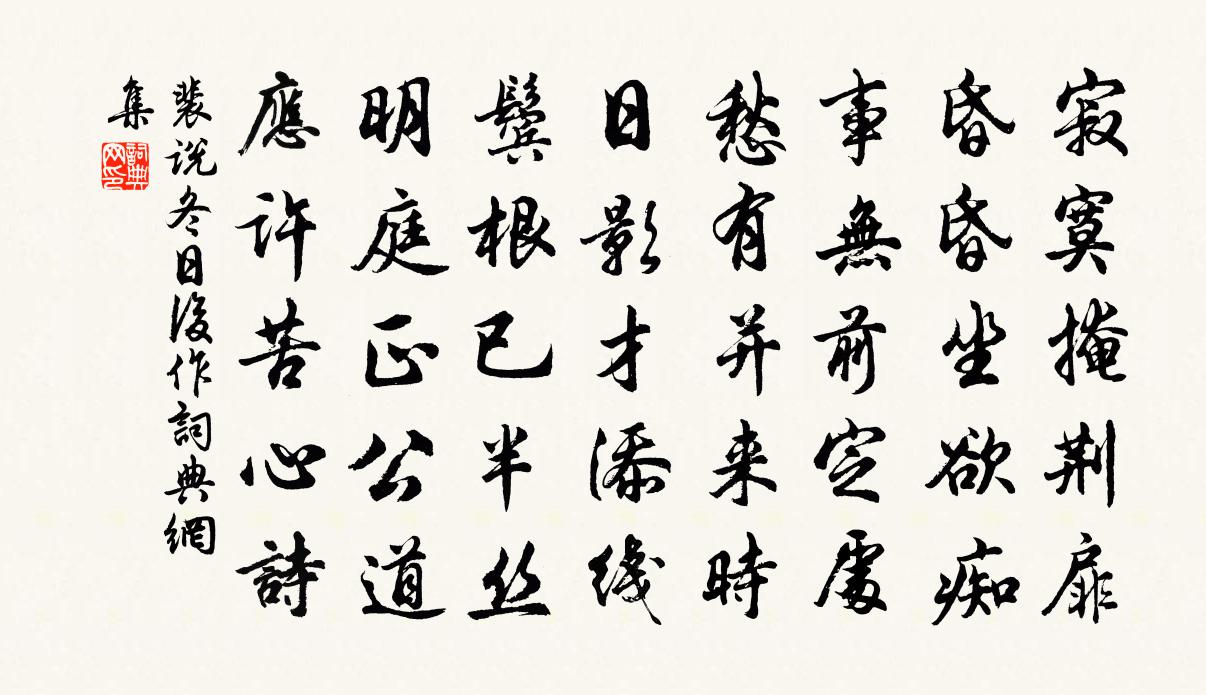 寂寞掩荆扉
昏昏坐欲痴
事無前定處
愁有并来時
日影才添线
鬓根已半丝
明庭正公道
應许苦心詩
裴说冬日後作詞典網
集
詞典网印